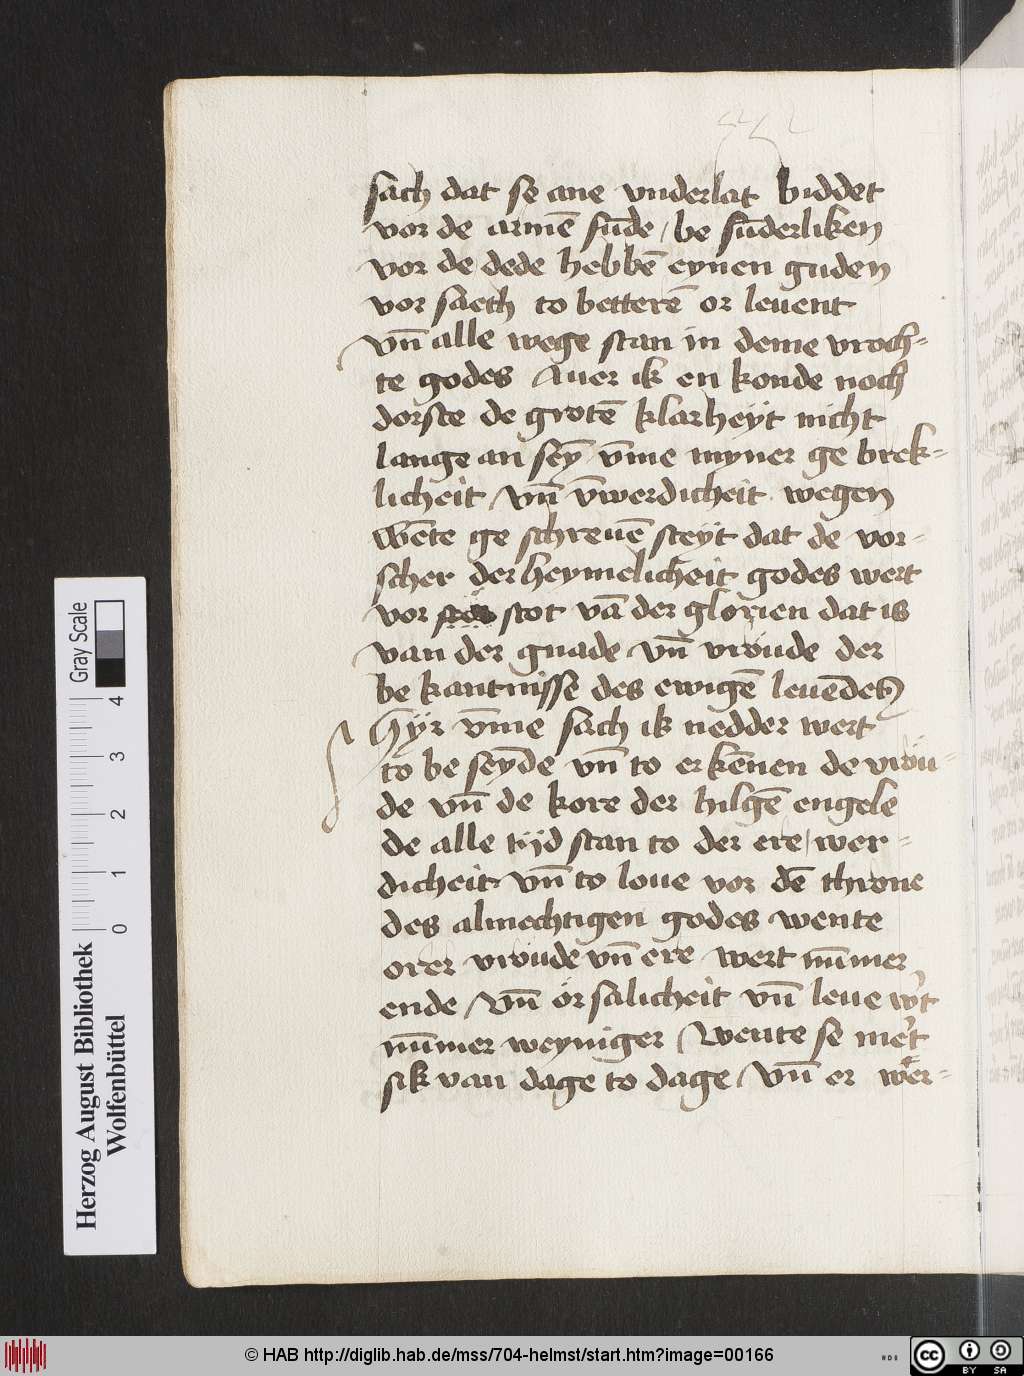 sach dat se ane vnderlat biddet
vor de armē sūde / be sūderliken
vor de dede hebbē eynen guden
vor saeth to betterē or leuent
vn̄ alle wege stan in deme vroch-
te godes Auer ik en konde noch
dorste de grotē klarheÿt nicht
lange an seȳ v̄me myner ge brek-
licheit / vn̄ v̄werdicheit wegen
wēte ge schreuē steÿt dat de vor-
scher der heymelicheit godes wert
vor stot vā der glorien dat is
van der gnade vn̄ vroude der
be kantnisse des ewigē leuēdes
Hÿr v̄me sach ik nedder wert
to be seȳde vn̄ to erkēnen de vröu-
de vn̄ de kore der hilgē engele
de alle tÿd stan to der ere / wer-
dicheit vn̄ to loue vor dē throne
des almechtigen godes wente
orer vroude vn̄ ere wert nūmer
ende / Vn̄ ör salicheit vn̄ leue w't
nūmer weyniger / Wente se me't
sik van dage to dage / Vn̄ er wer-
Gray Scale
0 1 2 3 4
Herzog August Bibliothek
Wolfenbüttel
© HAB http://diglib.hab.de/mss/704-helmst/start.htm?image=00166
cc BY SA